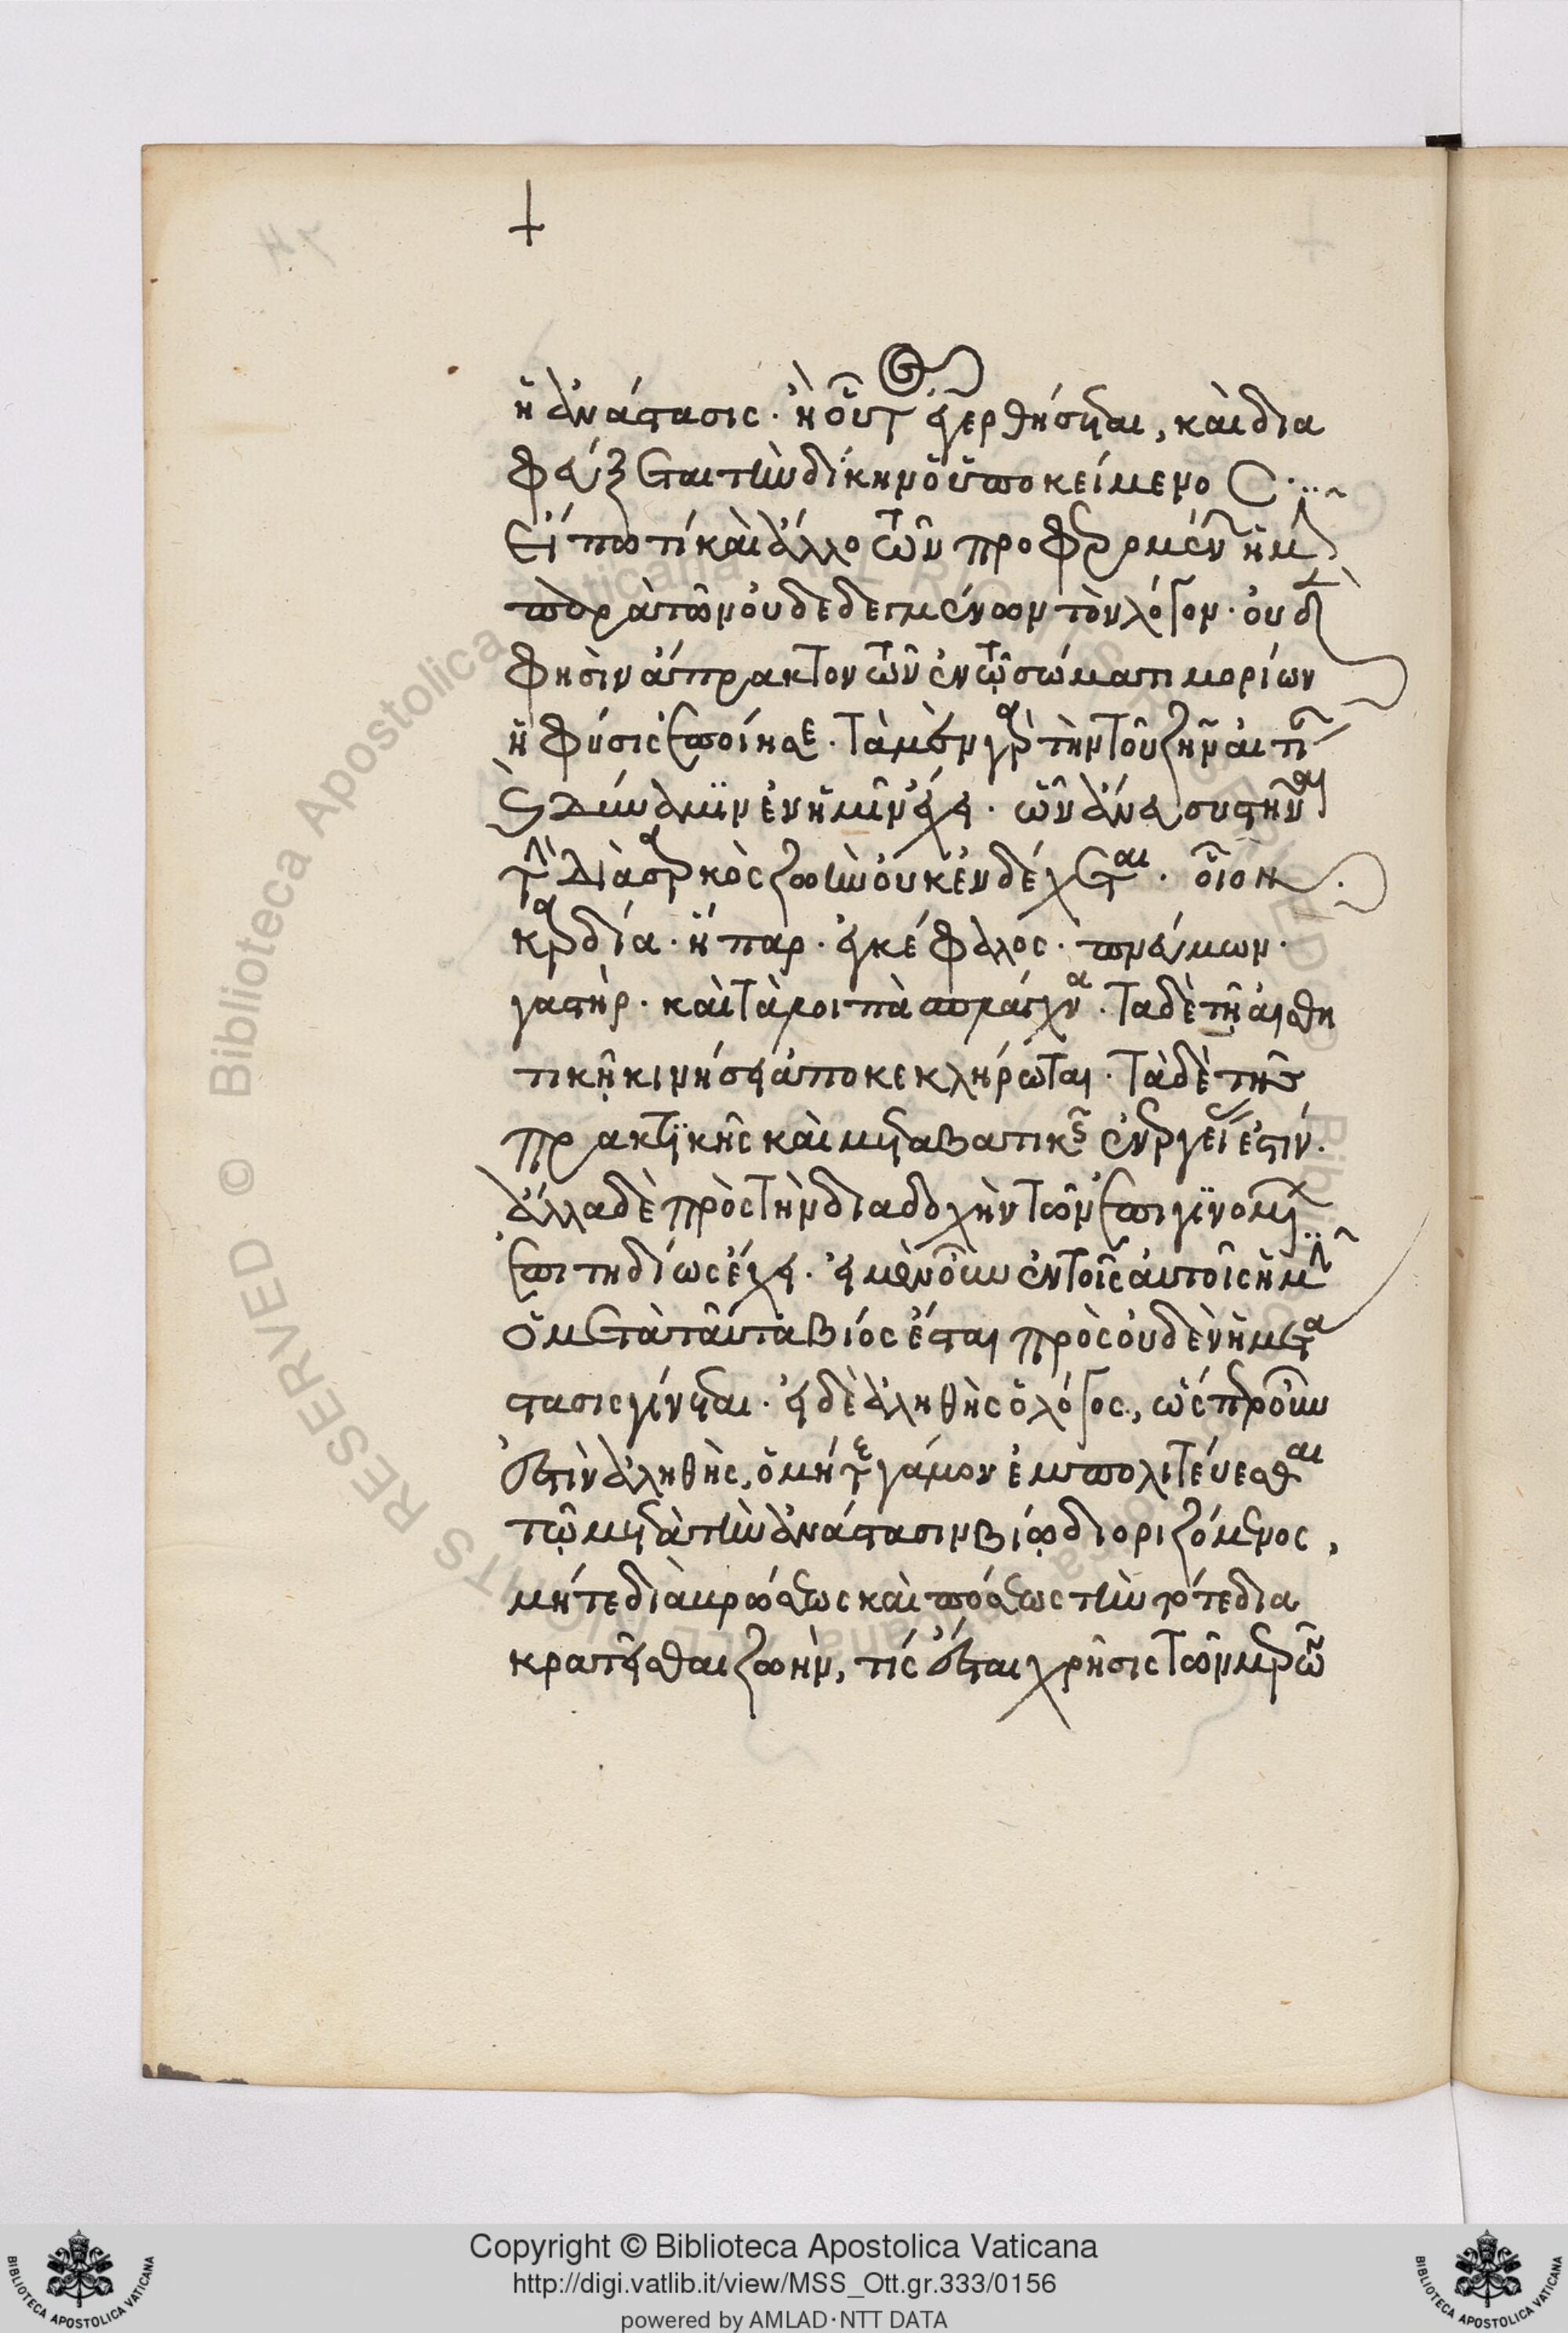 ἡ ἀνάστασις. ἢ οὔτ ἐγερθήσεται, καὶ δια
φεύξεται τὴν δίκην ὁ ὑποκείμενος.
Εἴπω τί καὶ ἄλλο τῶν προφερομένων ἡμῖν
παρὰ τῶν οὐ δεδεγμένων τὸν λόγον. οὐδὲν
φησὶν ἄπρακτον τῶν ἐν τῷ σώματι μορίων
ἡ φύσις ἐποίησε. τὰ μὲν γὰρ τὴν τοῦ ζῆν αἰτίαν
καὶ δύναμιν ἐν ἡμῖν ἔχει. ὧν ἄνευ συστῆναι
τὴν διὰ σαρκὸς ζωὴν οὐκ ἐνδέχεται. οἷον
καρδία. ἧπαρ. ἐγκέφαλος. πνεύμων.
γαστήρ. καὶ τὰ λοιπὰ σπλάγχνα. τὰ δὲ τῇ αἰσθη
τικῇ κινήσει ἀποκεκλήρωται. τὰ δὲ τῆς
πρακτικῆς καὶ μεταβατικῆς ἐνεργείας ἐστίν.
ἄλλα δὲ πρὸς τὴν διαδοχὴν τῶν ἐπιγινομένων
ἐπιτηδίως ἔχει. εἰ μὲν οὖν ἐν τοῖς αὐτοῖς ἡμῖν
ὁ μετὰ ταῦτα βίος ἔσται πρὸς οὐδὲν ἡ μετα
στασις γίνεται. εἰ δὲ ἀληθὴς ὁ λόγος, ὥσπερ οὖν
ἐστὶν ἀληθὴς, ὁ μήτε γάμον ἐμπολιτεύεσθαι
τῷ μετὰ τὴν ἀνάστασιν βίῳ διοριζόμενος,
μήτε διὰ βρώσεως καὶ πόσεως τὴν τότε δια
κρατεῖσθαι ζωὴν, τίς ἔσται χρῆσις τῶν μερῶν
Copyright © Biblioteca Apostolica Vaticana
http://digi.vatlib.it/view/MSS_Ott.gr.333/0156
powered by AMLAD·NTT DATA